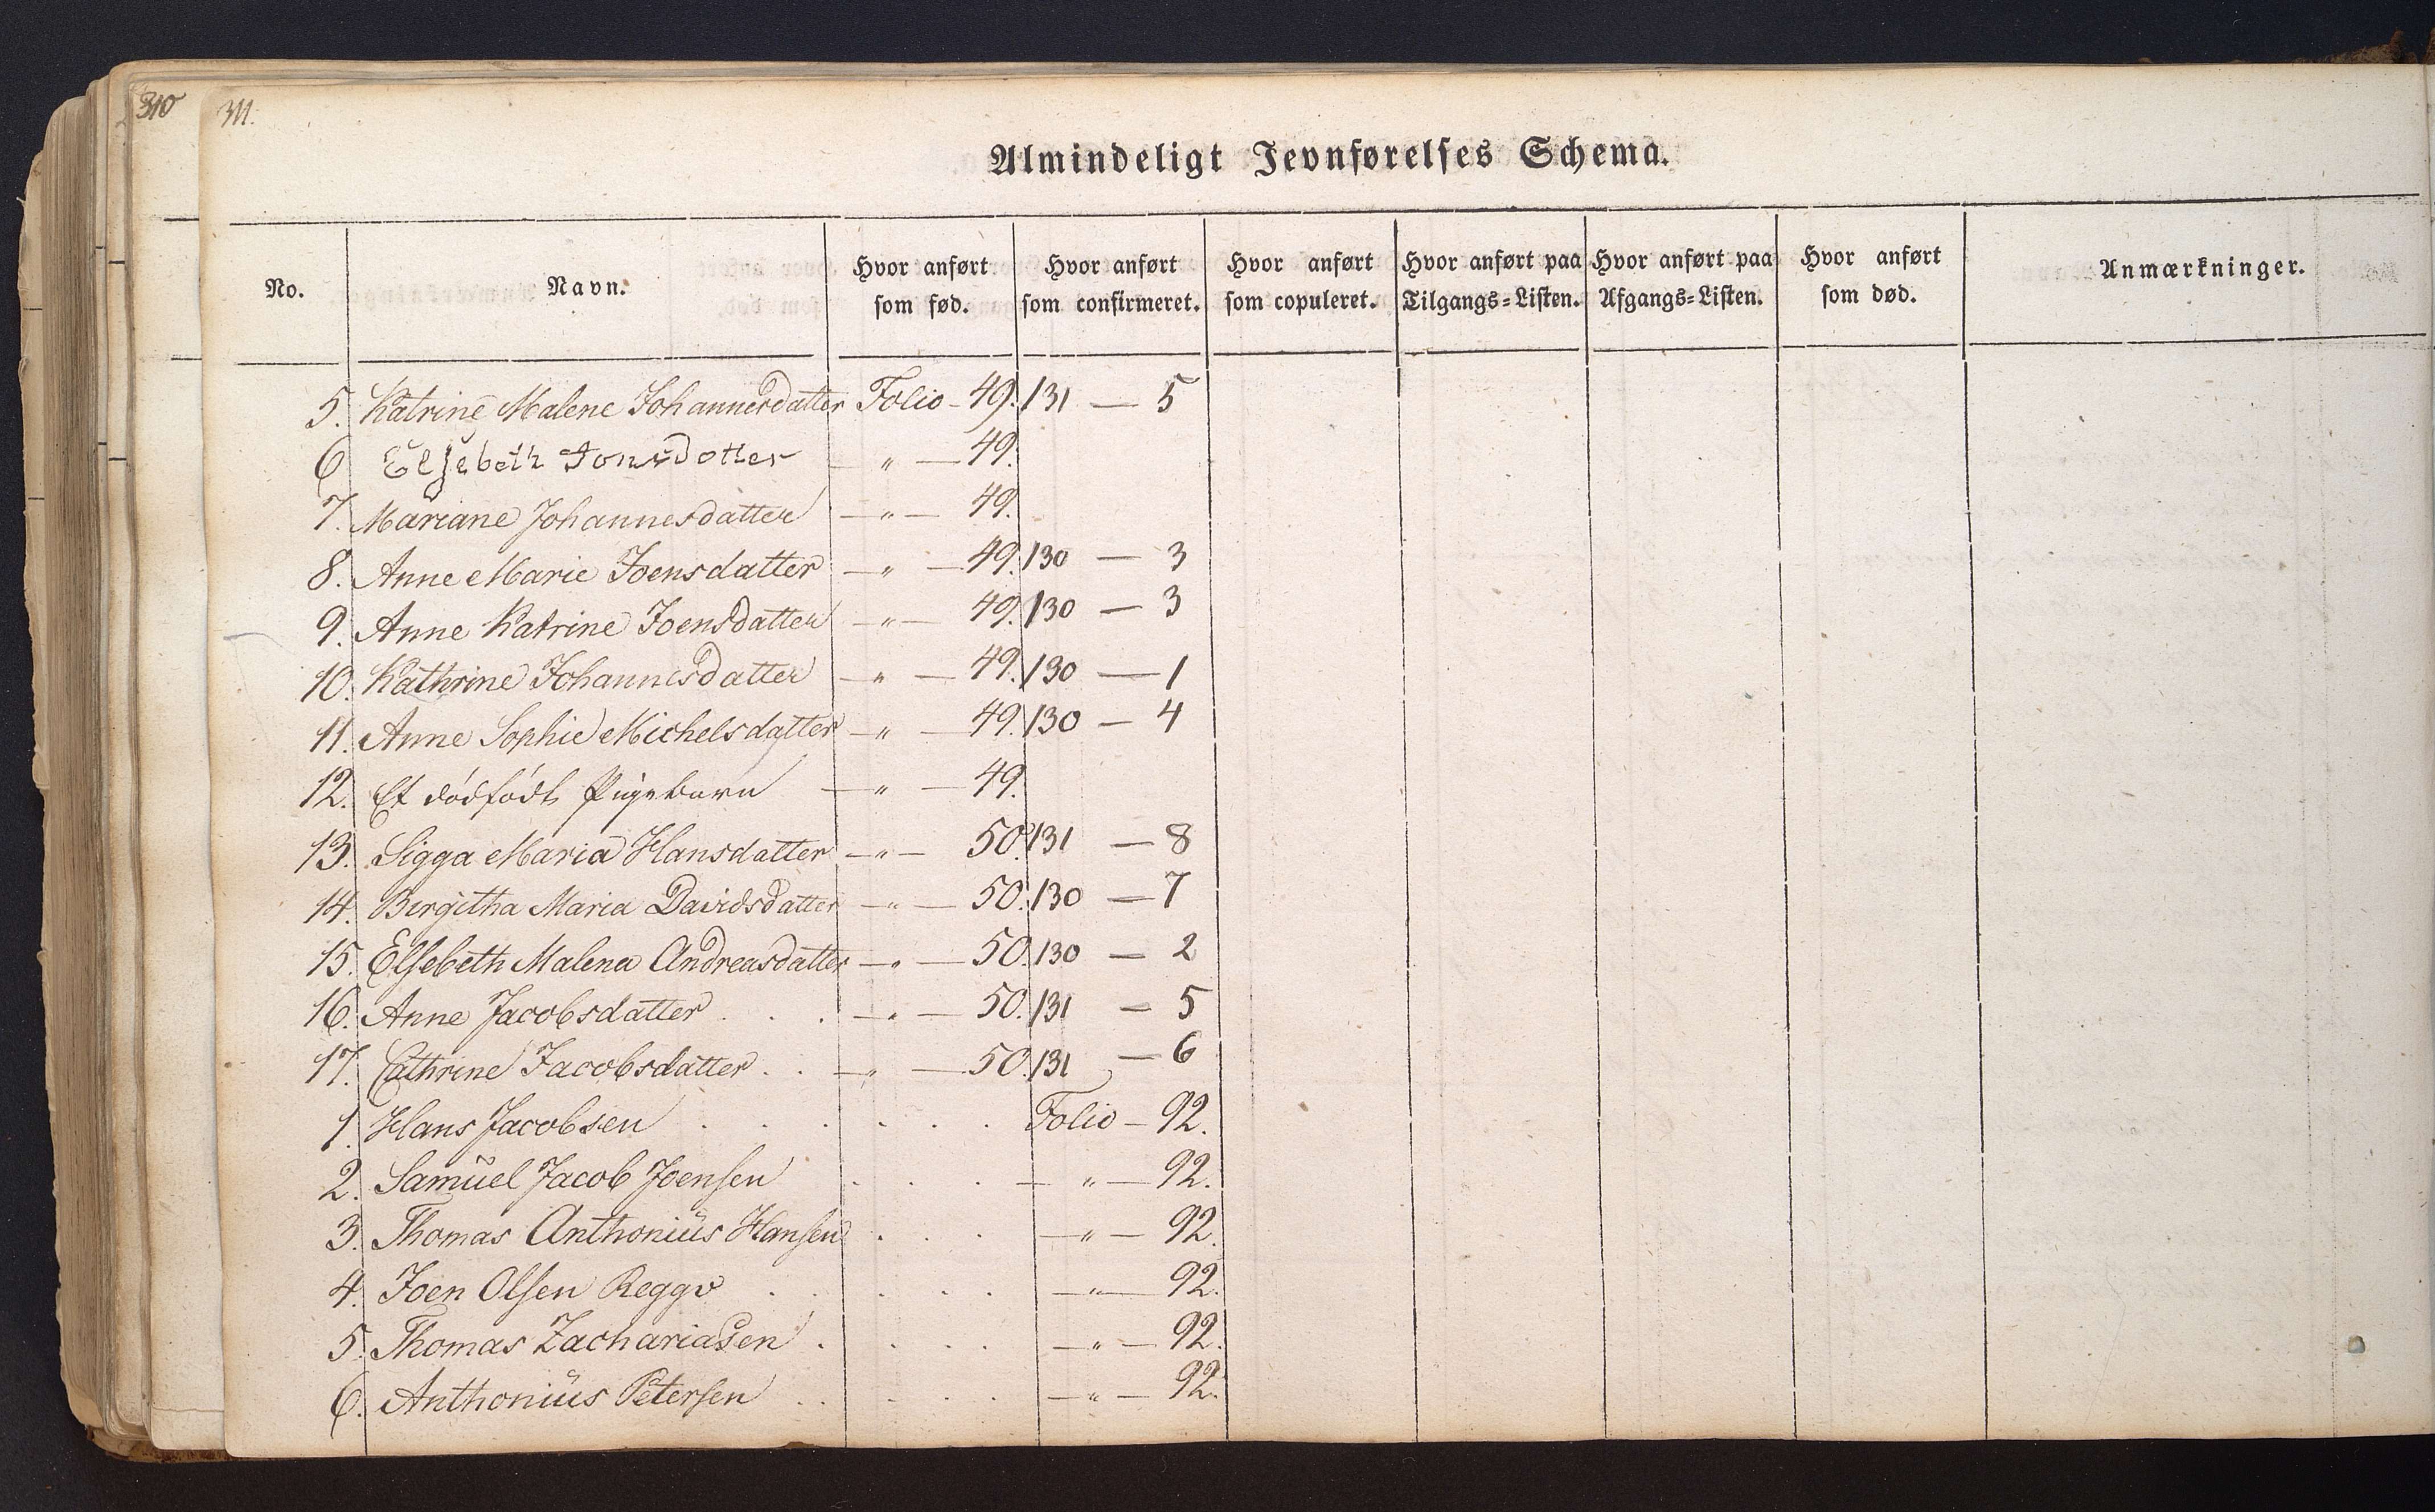 310
311.
Almindeligt Jevnførelses Schema.
No. Navn. Hvor anført som fød. Hvor anført som confirmeret. Hvor anført som copuleret. Hvor anført paa Tilgangs-Listen. Hvor anført paa Afgangs-Listen. Hvor anført som død. Anmærkninger.
5. Katrine Malene Johannesdatter Folio - 49. 131 — 5
6 Elsebeth Jonsdotter — " — 49.
7. Mariane Johannesdatter — " — 49.
8. Anne Marie Joensdatter — " — 49. 130 — 3
9. Anne Katrine Joensdatter — " — 49. 130 — 3
10. Kathrine Johannesdatter — " — 49. 130 — 1
11. Anne Sophie Michelsdatter — " — 49. 130 — 4
12. Et dødfødt Pigebarn — " — 49.
13. Sigga Maria Hansdatter — " — 50. 131 — 8
14. Birgitha Maria Davidsdatter — " — 50. 130 — 7
15. Elsebeth Malena Andreasdatter — " — 50. 130 — 2
16. Anne Jacobsdatter . . . — " — 50. 131 — 5
17. Cathrine Jacobsdatter . . — " — 50. 131 — 6
1. Hans Jacobsen . . . . . . Folio - 92.
2. Samuel Jacob Joensen . . . — " — 92.
3. Thomas Anthonius Hansen . . . — " — 92.
4. Joen Olsen Reggv . . . . . — " — 92.
5. Thomas Zachariasen . . . . — " — 92.
6. Anthonius Petersen . . . . . — " — 92.